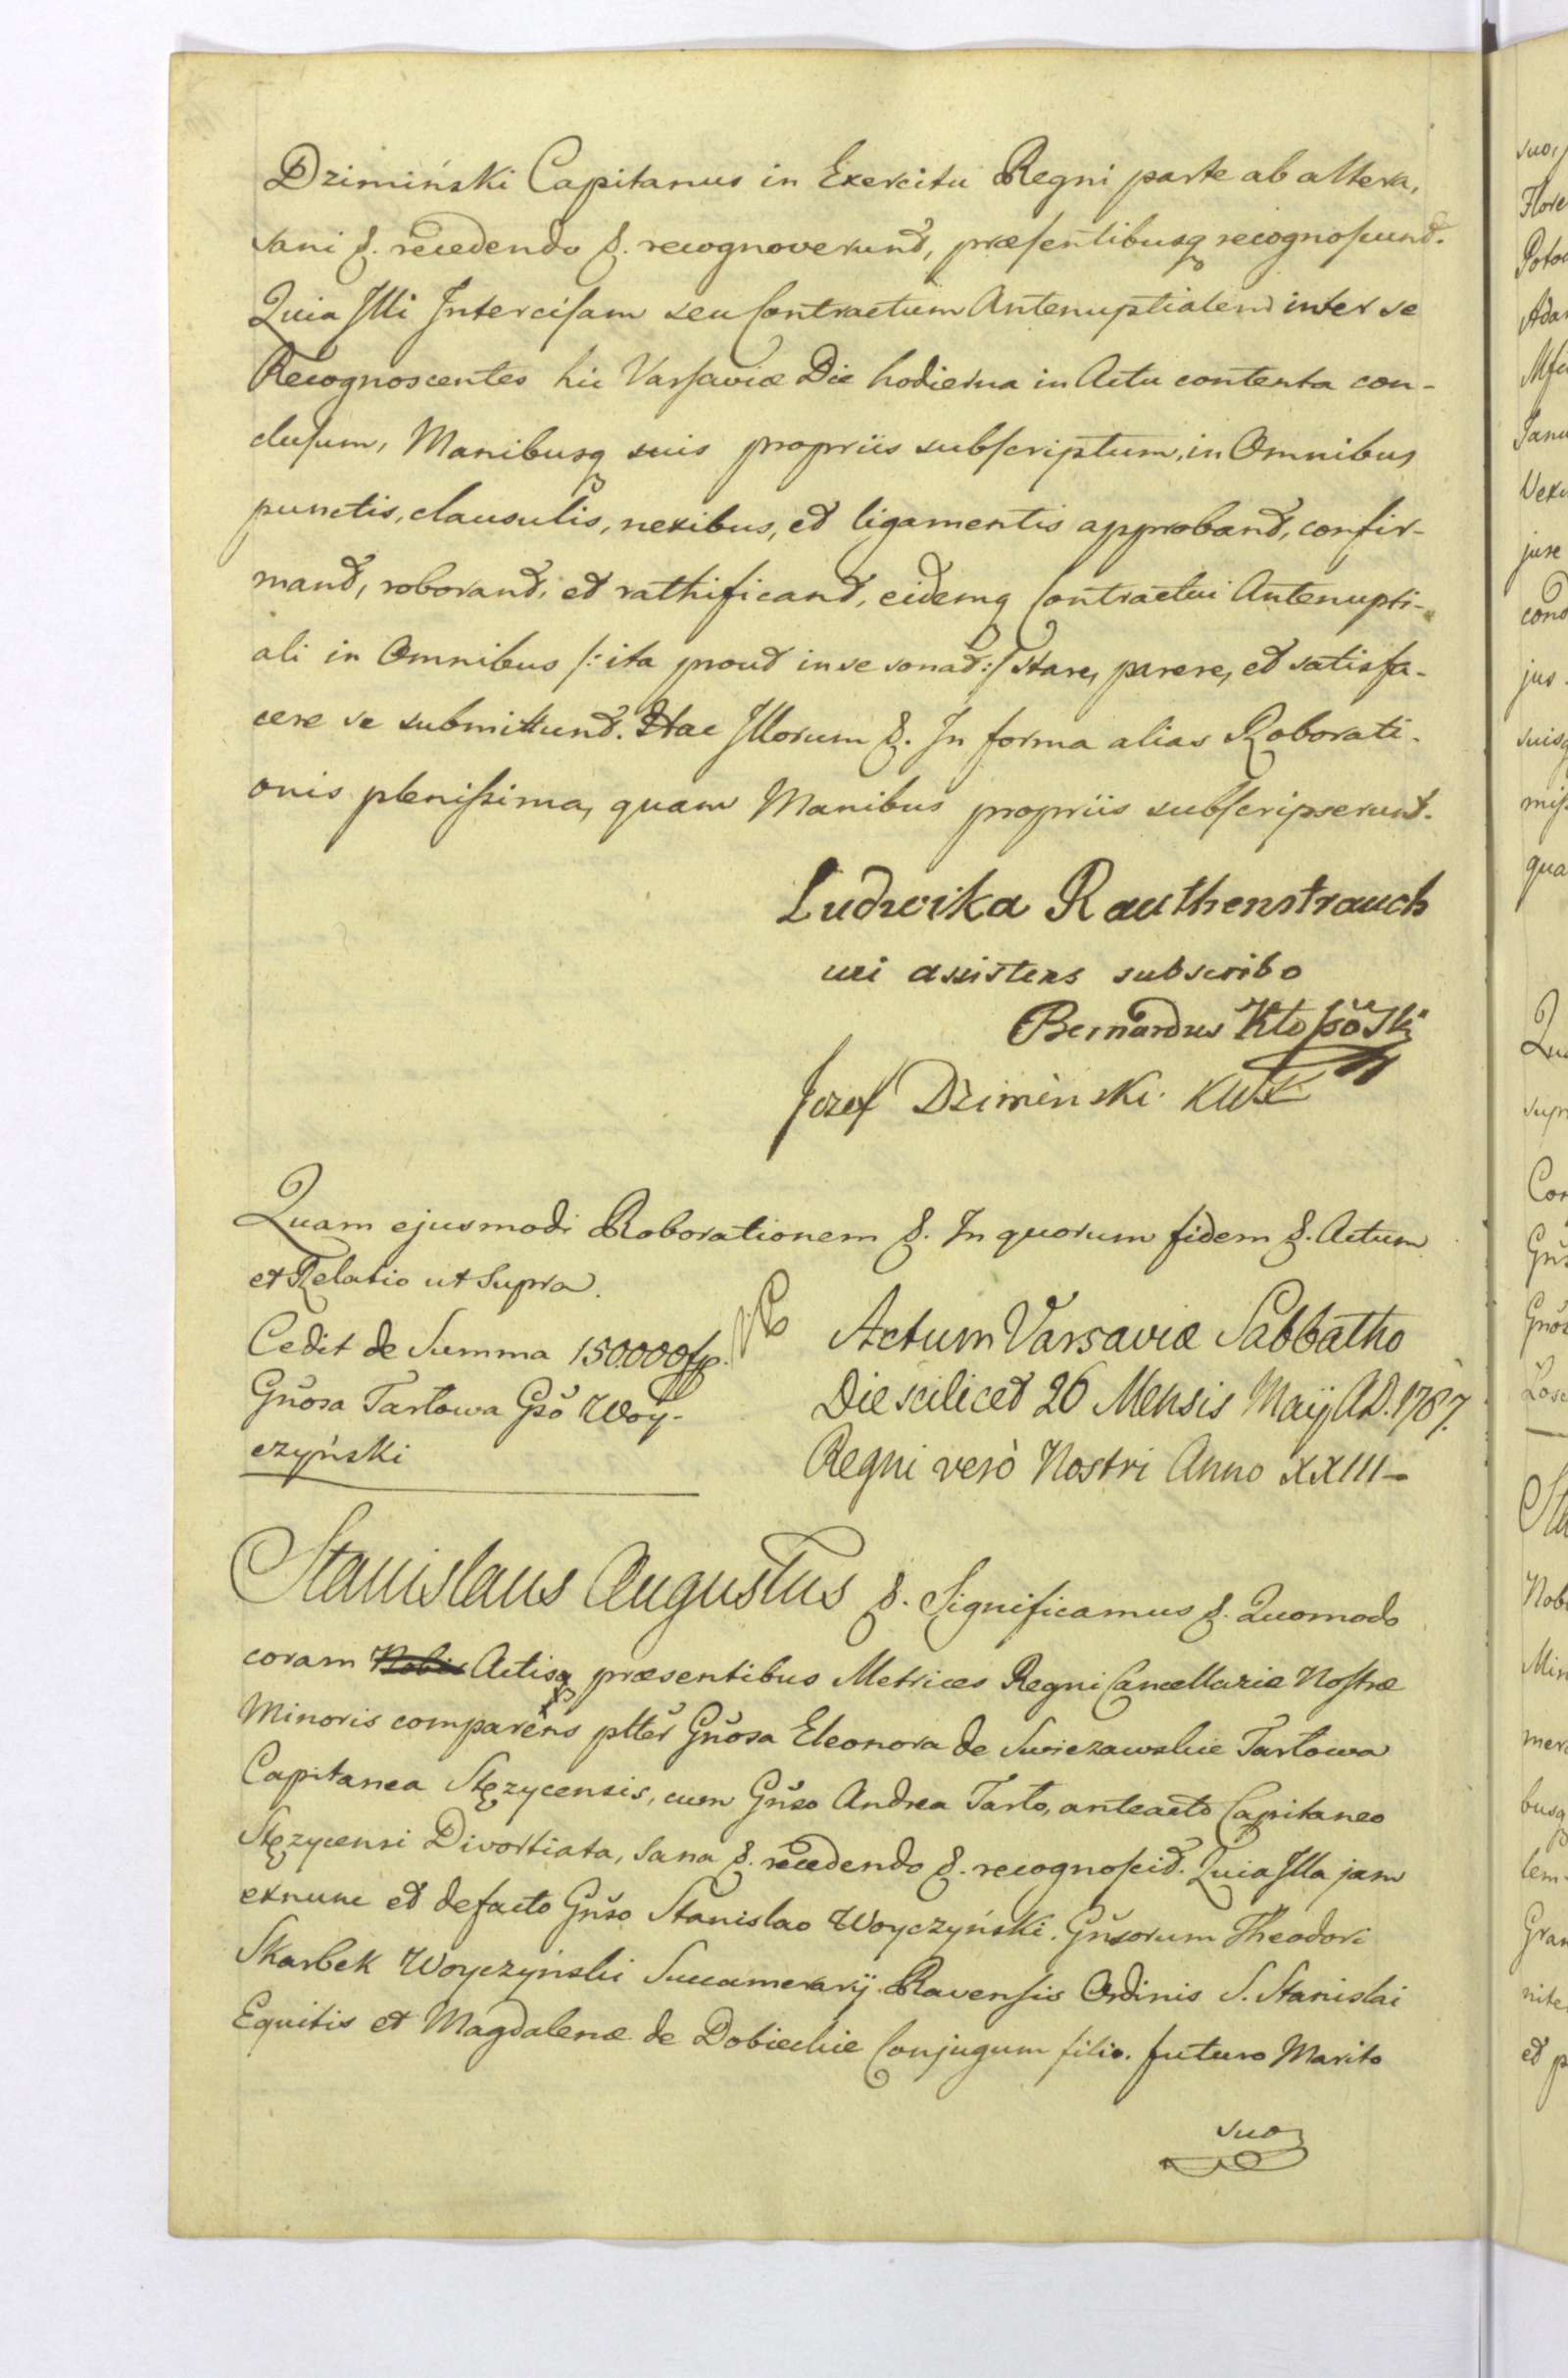 Dzimiński Capitanus in Exercitu Regni parte ab altera,
sani &. recedendo &. recognoverunt, præsentibusq recognoscunt.
Quia Illi Intercisam seu Contractum Antenuptialem inter se
Recognoscentes hic Varsaviæ Die hodierna in Actu contenta con-
clusum, Manibusq suis propriis subscriptum, in Omnibus
punctis, clausulis, nexibus, et ligamentis approbant, confir-
mant, roborant, et rathificant, eidemq Contractui Antenupti-
ali in Omnibus /: ita prout in se sonat :/ stare, parere, et satisfa-
cere se submittunt. Hac Illorum &. In forma alias Roborati-
onis plenissima, quam Manibus propriis subscripserunt.
Ludwika Rauthenstrauch
cui assistens subscribo
Bernardus
Jozef Dziminski KWK
Quam ejusmodi Roborationem &. In quorum fidem &. Actum
et Relatio ut Supra.
Cedit de Summa 150000 fp.
Gn̆osa Tarłowa Gn̆so Woy-
czyński
Actum Varsaviæ Sabbatho
Die scilicet 26 Mensis Maij A.D. 1787.
Regni verò Nostri Anno XXIII-
Stanislaus Augustus &. Significamus &. Quomodo
coram Nobis Actisq præsentibus Metrices Regni Cancellariæ Nostræ
Minoris comparens pltter̆ Gn̆osa Eleonora de Swiezawskie Tarłowa
Capitanea Stęzycensis, cum Gn̆so Andrea Tarło, anteacto Capitaneo
Stęzycensi Divortiata, Sana &. recedendo &. recognoscit. Quia Illa jam
exnunc et defacto Gn̆so Stanislao Woyczyński. Gn̆sorum Theodori
Skarbek Woyczyński Succamerarij Ravensis Ordinis S. Stanislai
Equitis et Magdalenæ de Dobieckie Conjugum filio. futuro Marito
suo